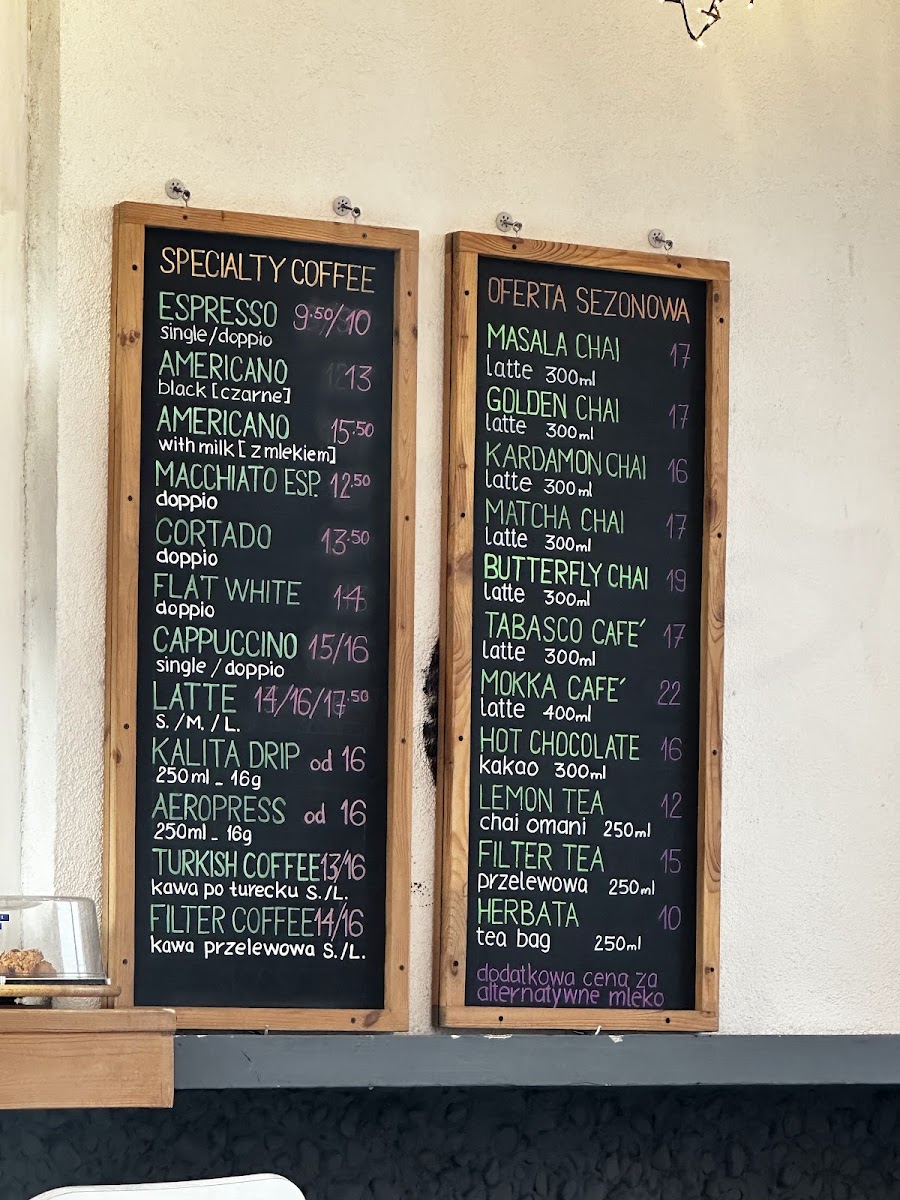 SPECIALTY COFFEE
ESPRESSO 9.50/10
single/doppio
AMERICANO 13
black [czarne]
AMERICANO 15.50
with milk [z mlekiem]
MACCHIATO ESP. 12.50
doppio
CORTADO 13.50
doppio
FLAT WHITE 14
doppio
CAPPUCCINO 15/16
single / doppio
LATTE 14/16/17.50
S./M./L.
KALITA DRIP od 16
250ml - 16g
AEROPRESS od 16
250ml - 16g
TURKISH COFFEE 13/16
kawa po turecku S./L.
FILTER COFFEE 14/16
kawa przelewowa S./L.
OFERTA SEZONOWA
MASALA CHAI 17
latte 300ml
GOLDEN CHAI 17
latte 300ml
KARDAMON CHAI 16
latte 300ml
MATCHA CHAI 17
latte 300ml
BUTTERFLY CHAI 19
latte 300ml
TABASCO CAFE´ 17
latte 300ml
MOKKA CAFE´ 22
latte 400ml
HOT CHOCOLATE 16
kakao 300ml
LEMON TEA 12
chai omani 250ml
FILTER TEA 15
przelewowa 250ml
HERBATA 10
tea bag 250ml
dodatkowa cena za
alternatywne mleko